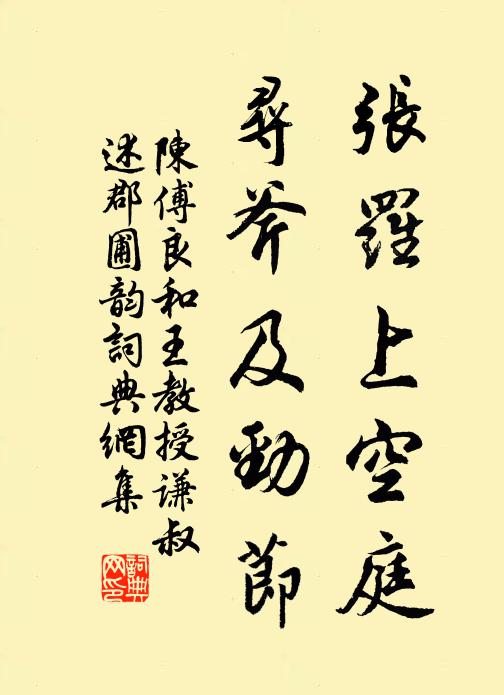 張羅上空庭
尋斧及勁節
陳傅良和王教授謙叔
述郡圃韵詞典網集
詞典网印